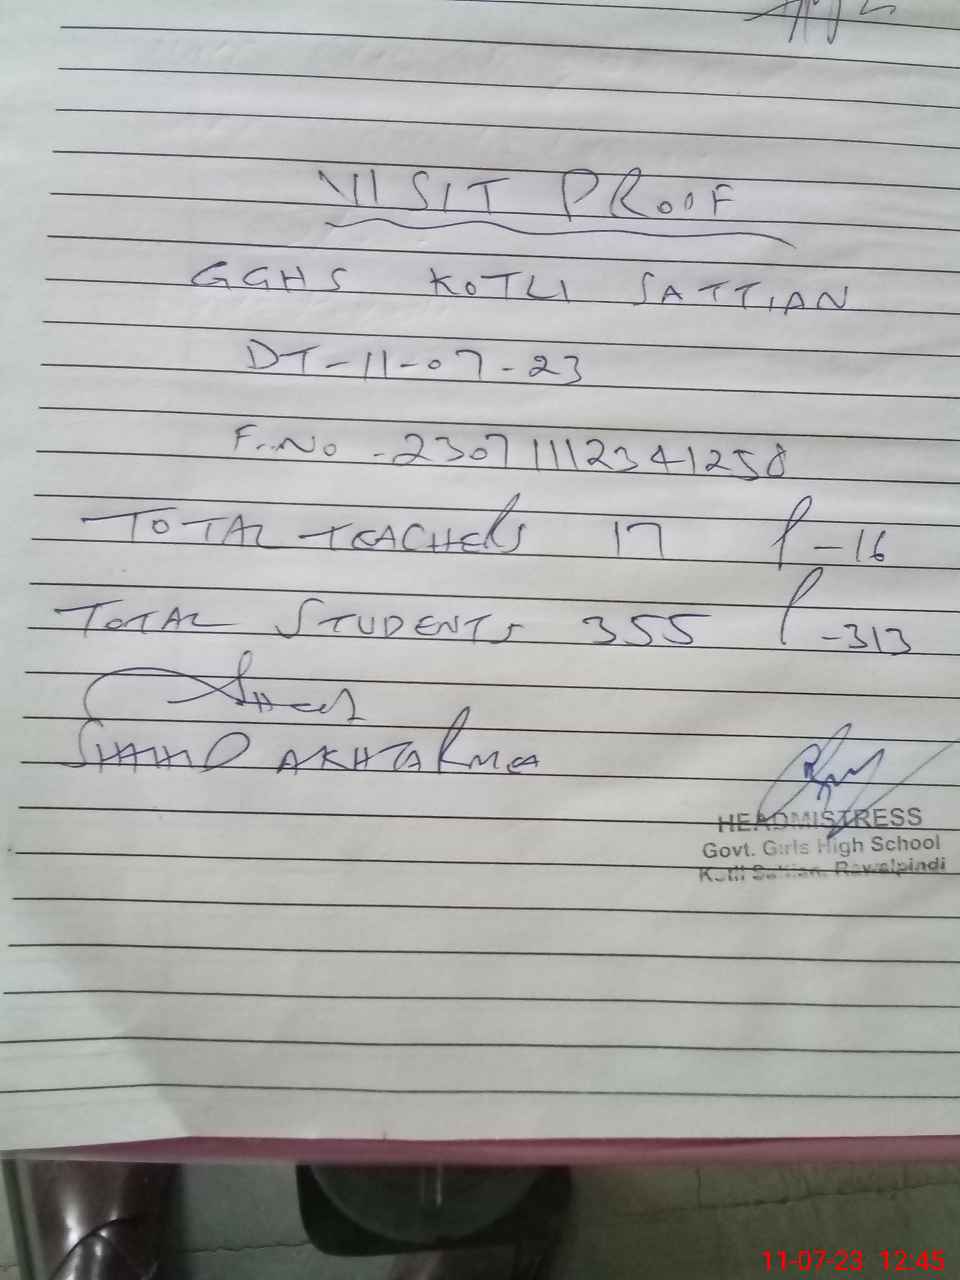 VISIT PROOF
GGHS KOTLI SATTIAN
DT-11-07-23
F..No -23071112341258
TOTAL TEACHERS 17 P-16
TOTAL STUDENTS 355 P-313
SHAHID AKHTAR
HEADMISTRESS
Govt. Girls High School
Kotli Sattian, Rawalpindi
11-07-23 12:45